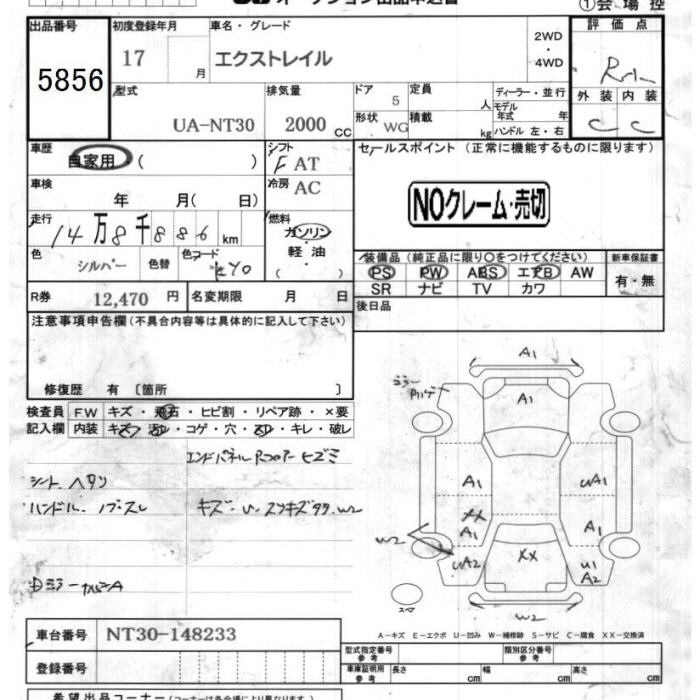 ①会場控
出品番号 初度登録年月 車名・グレード 2WD・4WD 評価点
5856 17 月 エクストレイル
型式 排気量 ドア 5 定員 人 ディーラー・並行 外装 内装
UA-NT30 2000 CC 形状 WG 積載 kg モデル年式 年 C C
ハンドル 左・右
車歴 自家用 ( ) シフト F AT セールスポイント (正常に機能するものに限ります)
車検 年 月( 日) 冷房 AC NOクレーム・売切
走行 14万8千886 km 燃料 ガソリン・軽油 ( )
色 シルバー 色替 色コード KY0
装備品 (純正品に限り〇をつけてください) 新車保証書
PS PW ABS エアB AW 有・無
SR ナビ TV カワ
R券 12,470 円 名変期限 月 日 後日品
注意事項申告欄 (不具合内容等は具体的に記入して下さい)
修復歴 有 〔箇所 〕
検査員 FW キズ・飛石・ヒビ割・リペア跡・×要
記入欄 内装 キズ・汚レ・コゲ・穴・スレ・キレ・破レ
エンドパネル Rフロアー ヒズミ
シート ヘタリ
ハンドル
A1
A1
A1 uA1
XX
A1 A1
W2 uA2 XX u1
A2
スペア
W2
A-キズ E-エクボ U-凹み W-補修跡 S-サビ C-腐食 XX-交換済
車台番号 NT30-148233
型式指定番号 参考 類別区分番号 参考
登録番号 車庫証明用 参考 長さ cm 幅 cm 高さ cm
希望出品コーナー